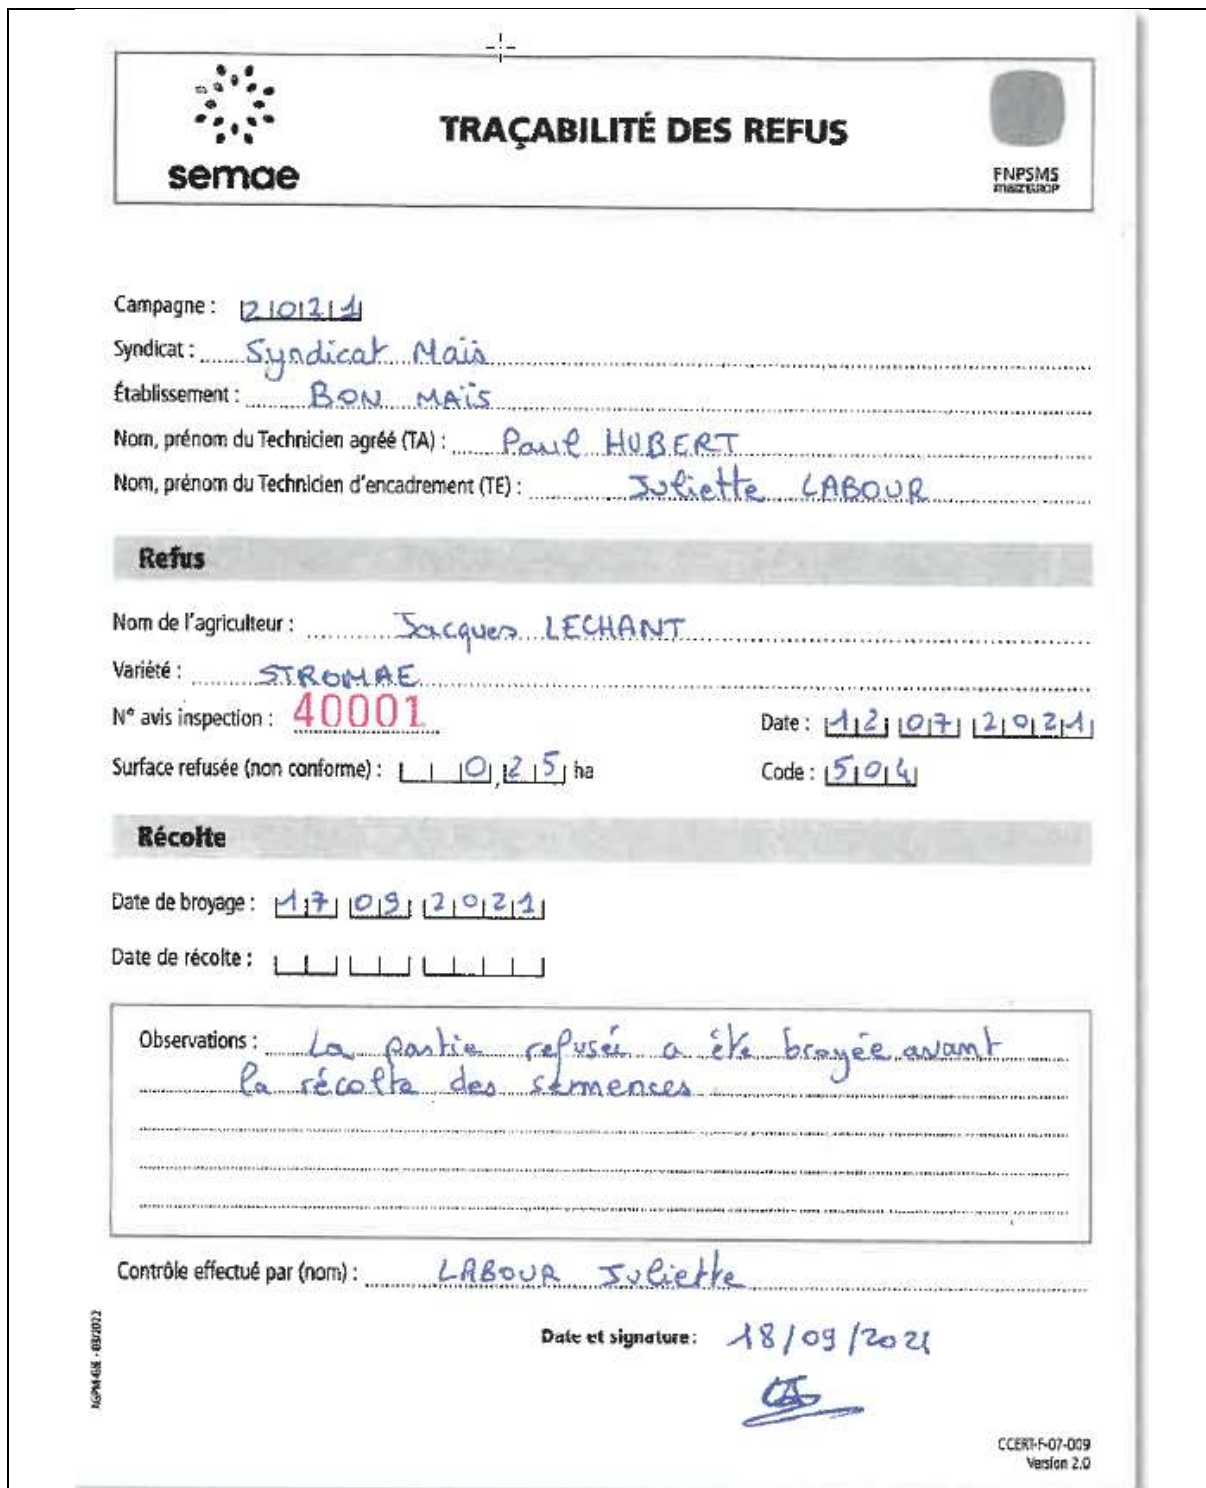 semae
TRAÇABILITÉ DES REFUS
FNPSMS
Campagne : 2021
Syndicat : Syndicat Maïs
Établissement : BON MAÏS
Nom, prénom du Technicien agréé (TA) : Paul HUBERT
Nom, prénom du Technicien d'encadrement (TE) : Juliette LABOUR
Refus
Nom de l'agriculteur : Jacques LECHANT
Variété : STROMAE
N° avis inspection : 40001 Date : 12 07 2021
Surface refusée (non conforme) : 0,25 ha Code : 504
Récolte
Date de broyage : 17 09 2021
Date de récolte :
Observations : La partie refusée a été broyée avant
la récolte des semences
Contrôle effectué par (nom) : LABOUR Juliette
Date et signature : 18/09/2021
CCERT-F-07-009
Version 2.0